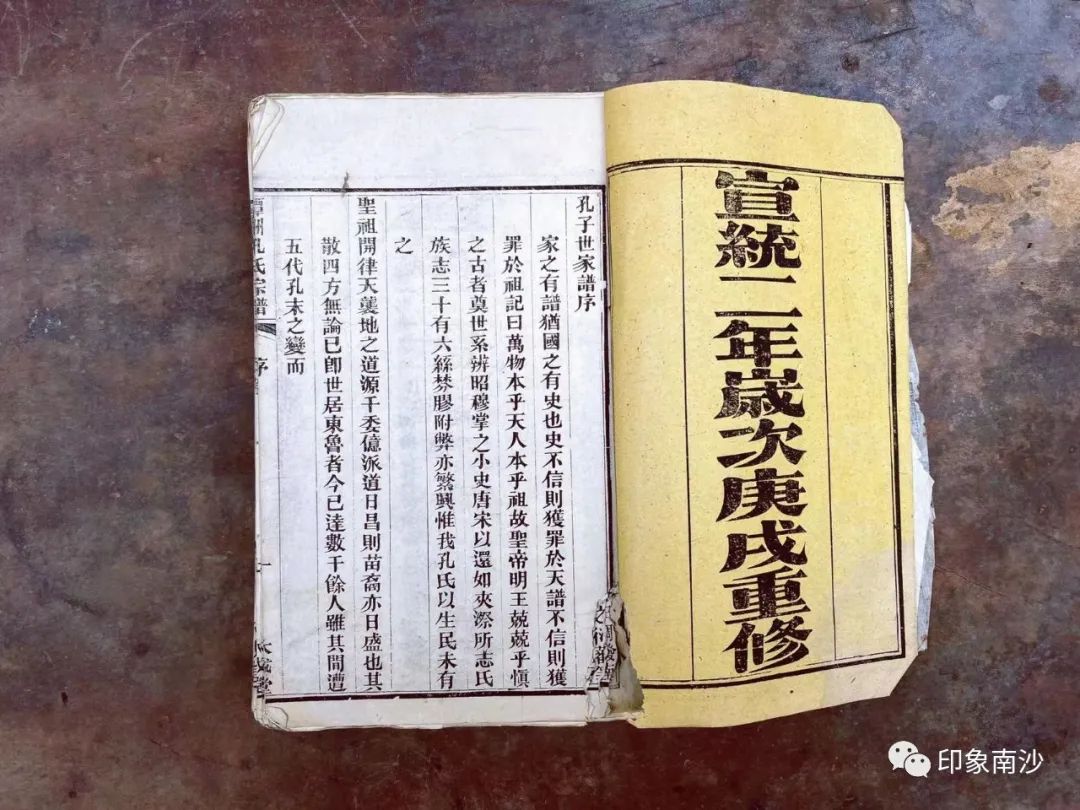 宣統二年歲次庚戌重修
孔子世家譜序
家之有譜猶國之有史也史不信則獲罪於天譜不信則獲
罪於祖記曰萬物本乎天人本乎祖故聖帝明王兢兢乎愼
之古者奠世系辨昭穆掌之小史唐宋以還如夾漈所志氏
族志三十有六絲棼膠附弊亦繁興惟我孔氏以生民未有
之
聖祖開律天襲地之道源千委億派道日昌則苗裔亦日盛也其
散四方無論已卽世居東魯者今已達數千餘人雖其間遭
五代孔末之變而
孔氏宗譜
序
一
印象南沙